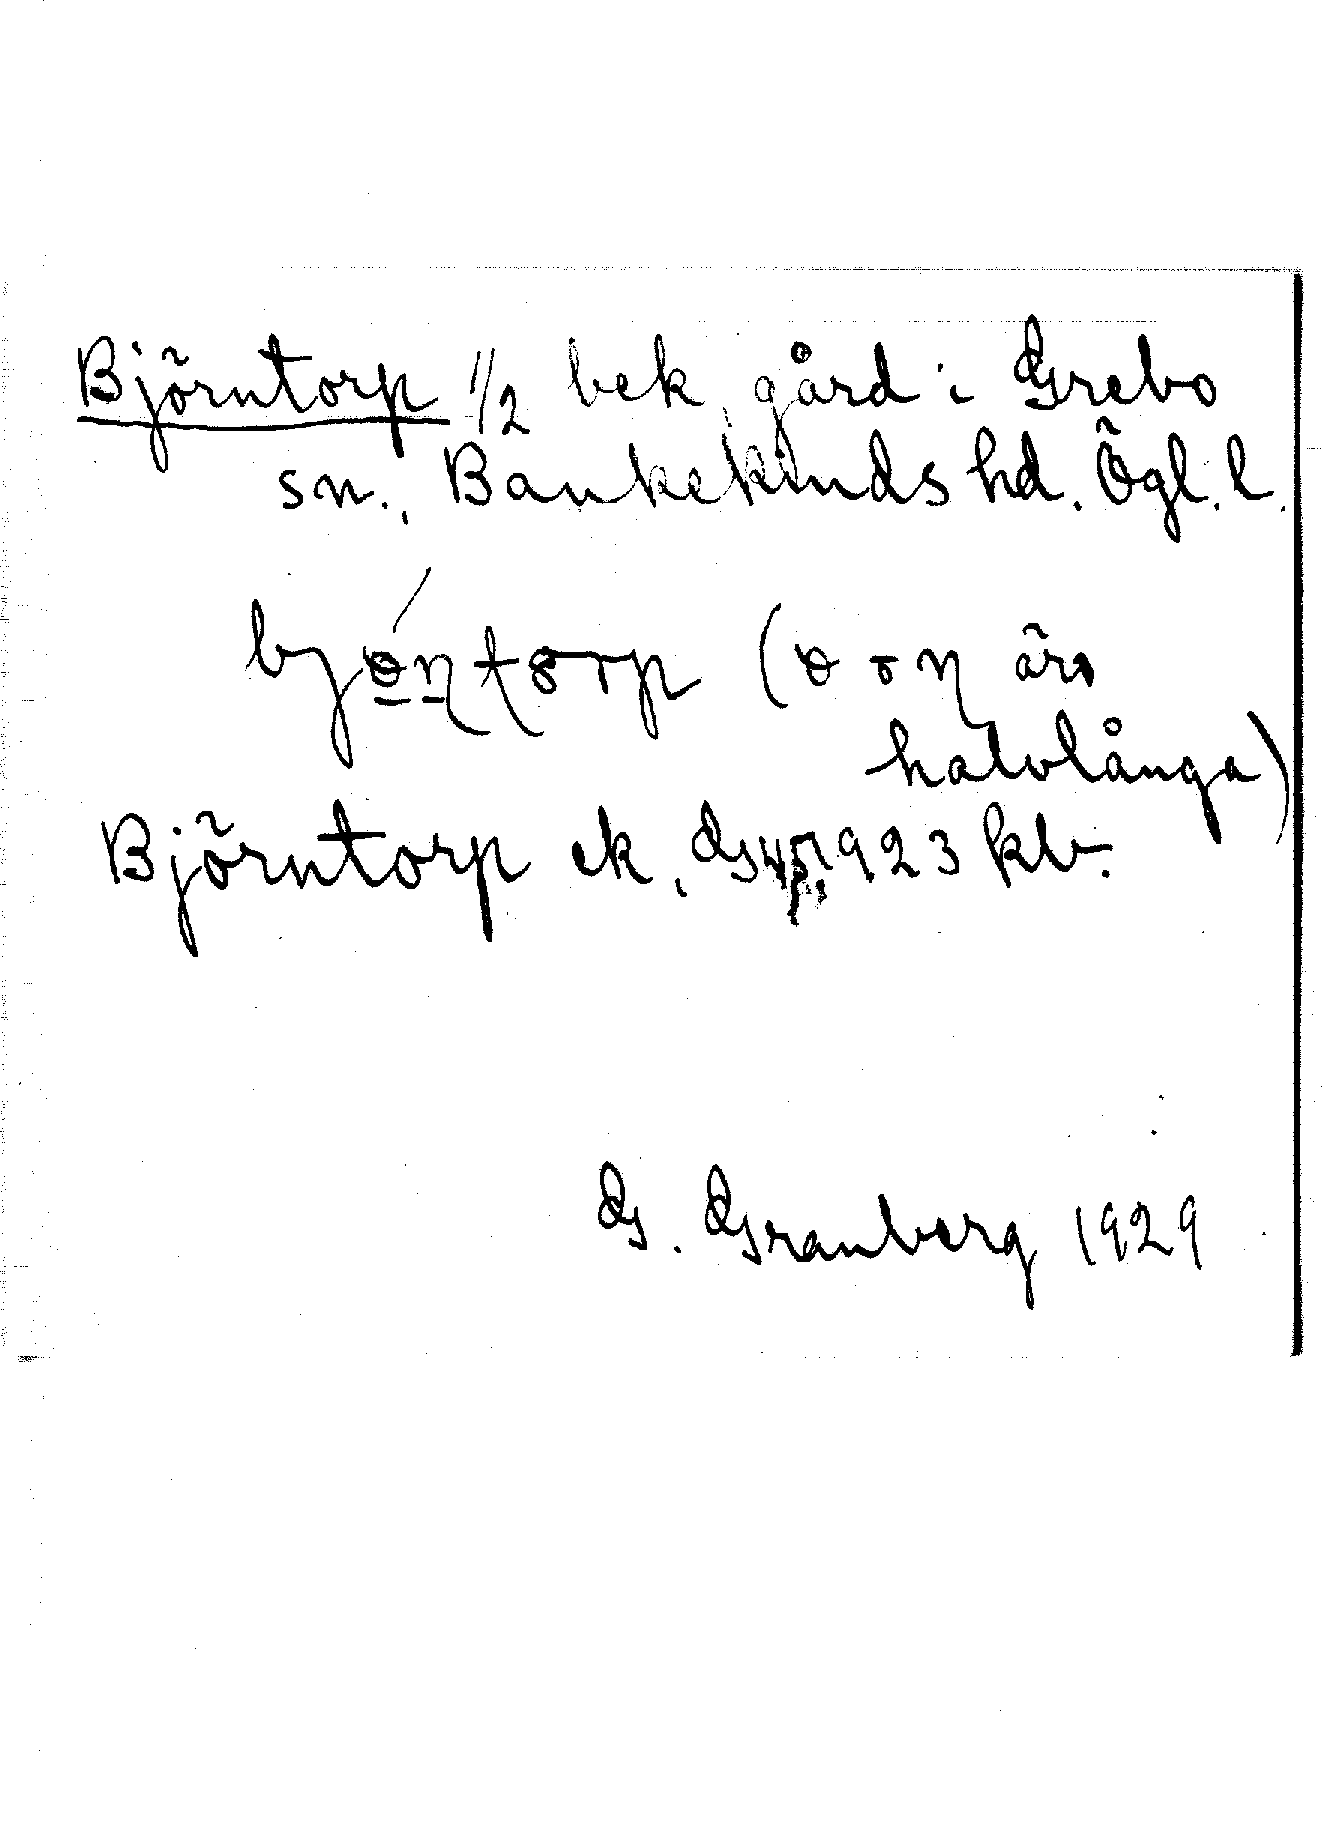 Björntorp 1/2 bek gård i Grebo
sn., Bankekinds hd. Ögl. l.
bjǿn̠torp (ө o n äro
halvlånga)
Björntorp ek. 1923 kb.
G. Granberg 1929